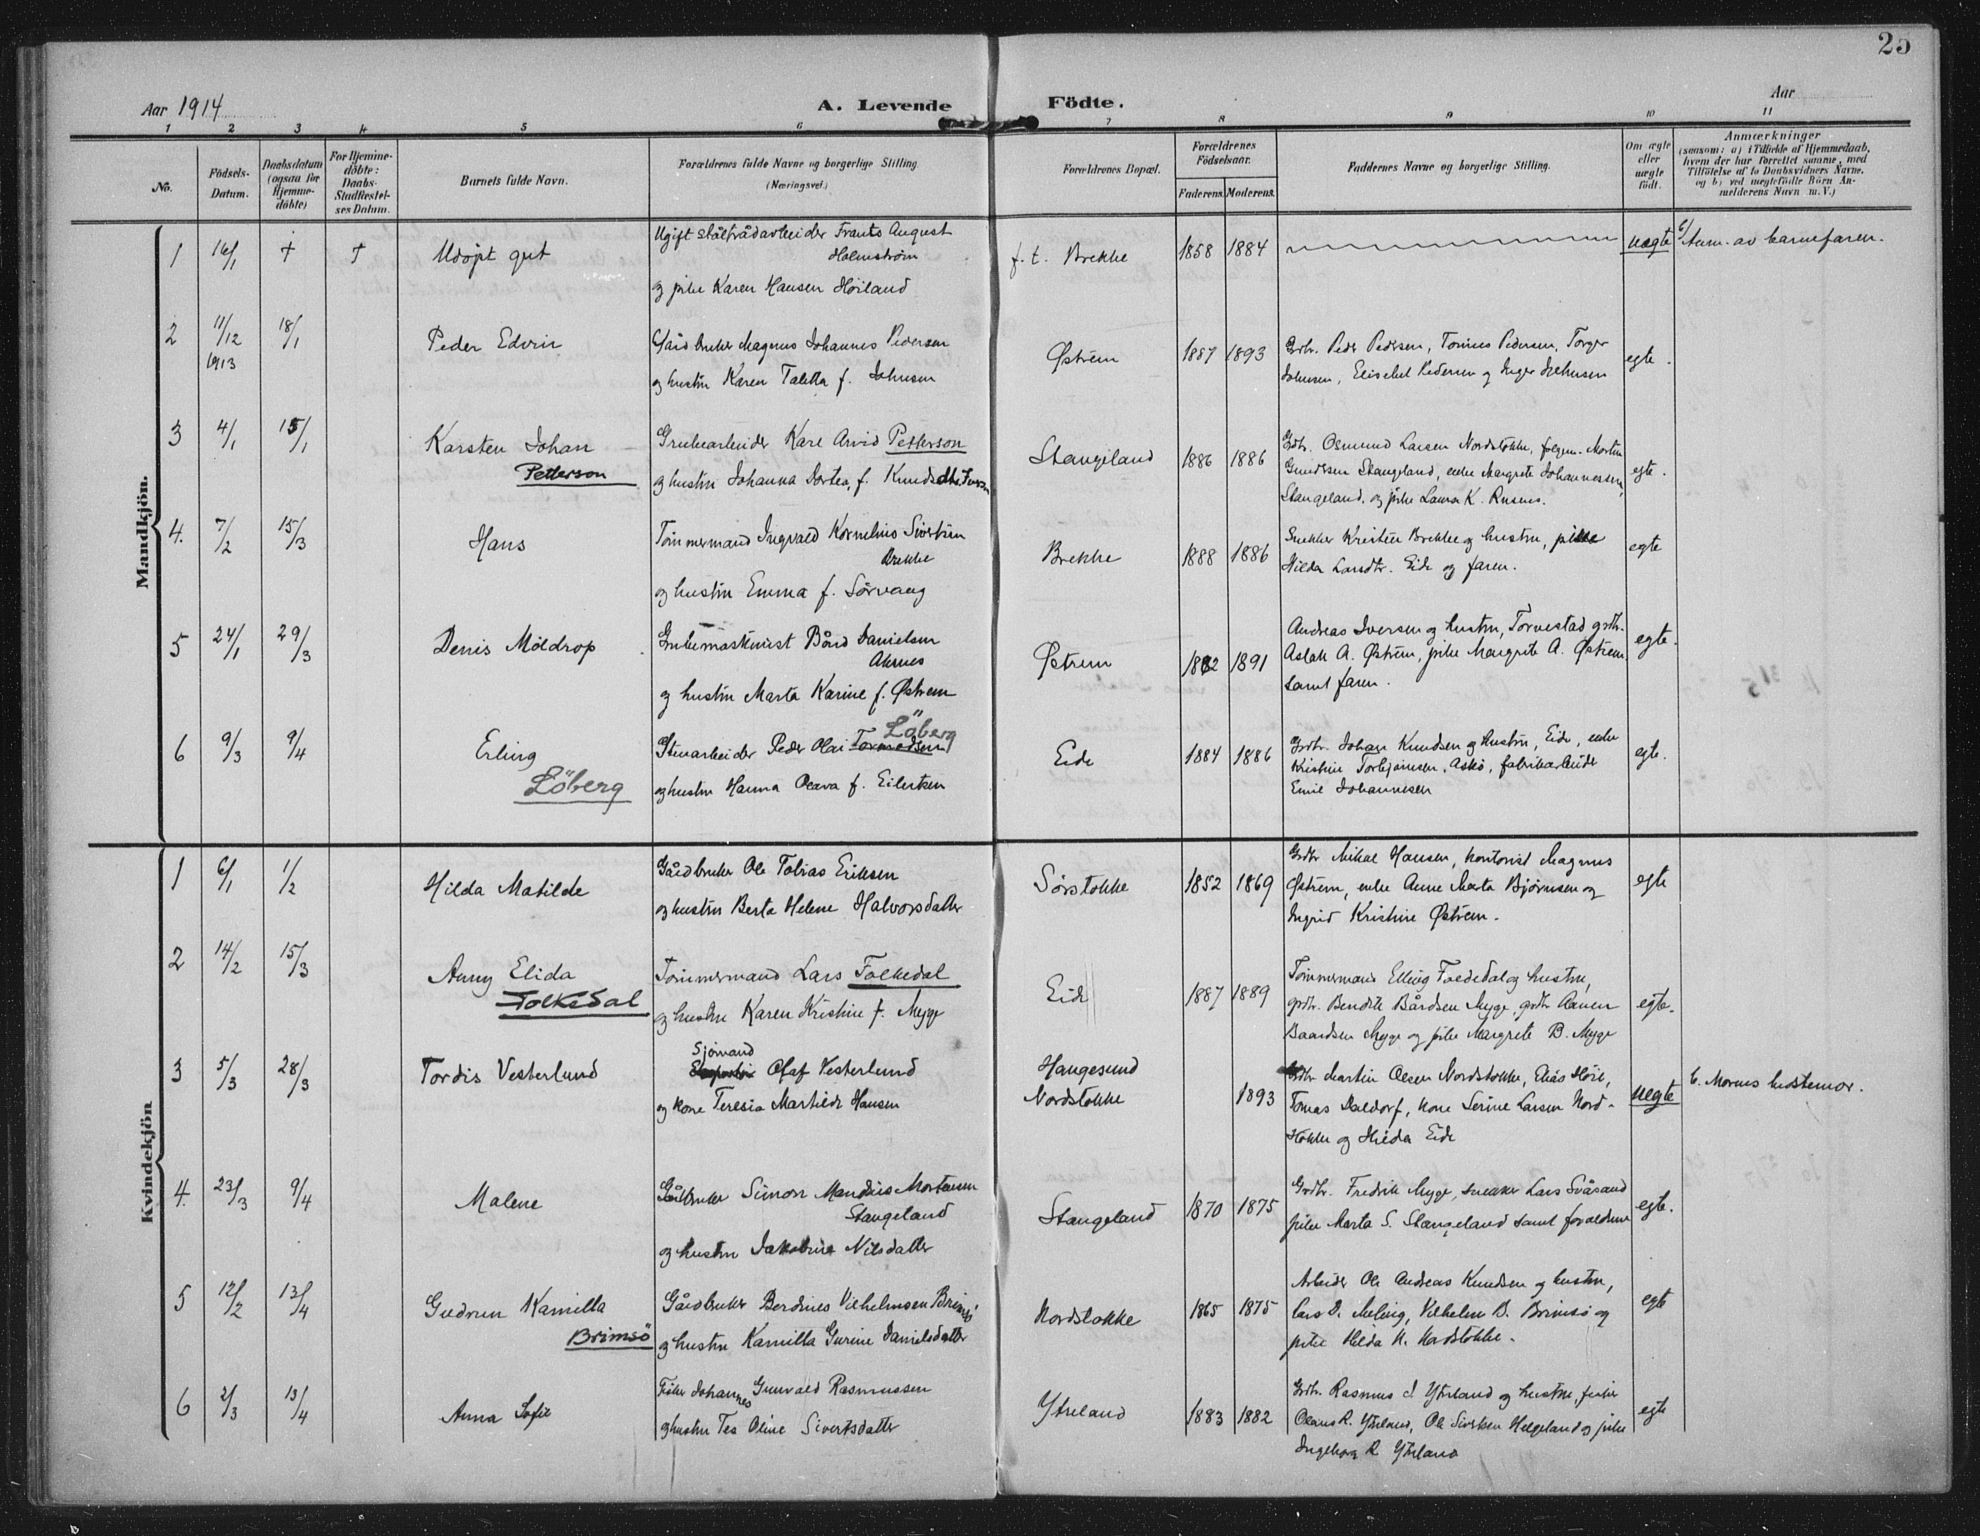 25
Aar 1914
A. Levende Födte.
Aar
1 2 3 4 5 6 7 8 9 10 11
No.
Födsels-Datum.
Daabsdatum (ogsaa for Hjemme-döbte)
For Hjemme-döbte: Daabs-Stadfæstel-ses Datum.
Barnets fulde Navn.
Forældrenes fulde Navne og borgerlige Stilling.
(Næringsvei.)
Forældrenes Bopæl.
Forældrenes Födselsaar.
Faderens. Moderens.
Faddernes Navne og borgerlige Stilling.
Om ægte eller uægte födt.
Anmærkninger
(saasom: a) i Tilfælde af Hjemmedaab,
hvem der har forrettet samme, med
Tilföielse af to Daabsvidners Navne,
og b) ved uægtefödte Börn An-
melderens Navn m. V.)
Mandkjön.
1 16/1 + + Udöpt gut
Ugift ståltrådarbeider Frants August
Holmström
og pike Karen Hansen Höiland
f. t. Brekke 1858 1884 uegte Anm. av barnefaren.
2 11/12 1913 18/1 Peder Edvin
Gårdbruker Magnus Johannes Pedersen
og hustru Karen Taletta f. Johnsen
Østrem 1887 1893
Grdbr. Peder Pedersen, Tomines Pedersen, Torger
Johnsen, Elisabet Pedersen og Inger Johnsen
egte.
3 4/1 15/1 Karsten Johan
Petterson
Grubearbeider Karl Arvid Petterson
og hustru Johanna Dortea, f. Knuds
Stangeland 1886 1886
Grdbr. Osmund Larsen Nordstokke, Morten
Gundersen Stangeland, enke Margrete Johannesen,
Stangeland, og pike Laura K.
egte.
4. 7/2 15/3 Hans
Tömmermand Ingvald Kornelius Sivertsen
Brekke
og hustru Emma f. Sörvaag
Brekke 1888 1886
Snekker Kristen Brekke og hustru, pike
Hilda Larsdtr. Eide og faren.
egte
5 24/1 29/3 Denis Möldrop
Grubemaskinist Bård Danielsen
Aknes
og hustru Marta Karine f. Østrem
Østrem 1882 1891
Andreas Iversen og hustru, Torvestad grdbr.
Aslak A. Østrem, pike Margrete A. Østrem
samt faren.
egte.
6 9/3 9/4 Erling
Löberg
Löberg
Stenarbeider Peder Olai Tormodsen
og hustru Hanna Olava f. Eilertsen
Eide 1884 1886
Grdbr. Johan Knudsen og hustru, Eide, enke
Kristine Torbjörnsen, Askö, fabrikarbeider
Emil Johannesen
egte.
Kvindekjön
1 6/1 1/2 Hilda Matilde
Gårdbruker Ole Tobias Eriksen
og hustru Berta Helene Halvorsdatter
Sörstokke 1852 1869
Grdbr Mikal Hansen, kontorist Magnus
Østrem, enke Anne Marta Bjørnsen og
Ingrid Kristine Østrem.
egte
2 14/2 15/3 Anny Elida
Folkedal
Tömmermand Lars Folkedal
og hustru Karen Kristine f. Myge
Eide 1887 1889
Tömmermand Elling Folkedal og hustru,
grdbr. Bendik Bårdsen Myge, grdbr Aanen
Baardsen Myge og pike Margrete B. Myge
egte.
3 5/3 28/3 Tordis Vesterlund
Sjömand
Olaf Vesterlund
og kone Teresia Martilde Hansen
Haugesund
Nordstokke
1893
Grdbr Martin Olsen Nordstokke, Elias Höie,
Tomas Daldorf, kone Serine Larsen Nord-
stokke og Hilda Eide
uegte Morens hustemor.
4. 23/3 9/4 Malene
Gårdbruker Simon Mandius Mortensen
Stangeland
og hustru Jakobine Nilsdatter
Stangeland 1870 1875
Grdbr. Fredrik Myge, snekker Lars Svåsand
pike Marta S. Stangeland samt foreldrene
egte.
5 12/2 13/4 Gudrun Kamilla
Brimsö
Gårdbruker Berdines Vilhelmsen Brimsö
og hustru Kamilla Gurine Danielsdatter
Nordstokke 1865 1875
Arbeider Ole Andreas Knudsen og hustru,
Lars D. Meling, Vilhelm B. Brimsö og
pike Hilda N. Nordstokke.
egte
6 2/3 13/4 Anna Sofie
Fisker Johannes Gunvald Rasmussen
og hustru Tea Oline Sivertsdatter
Ytreland 1883 1882
Grdbr. Rasmus J Ytreland og hustru, fisker
Olaus R. Ytreland, Ole Sivertsen Helgeland og pike
Ingeborg R Ytreland
egte